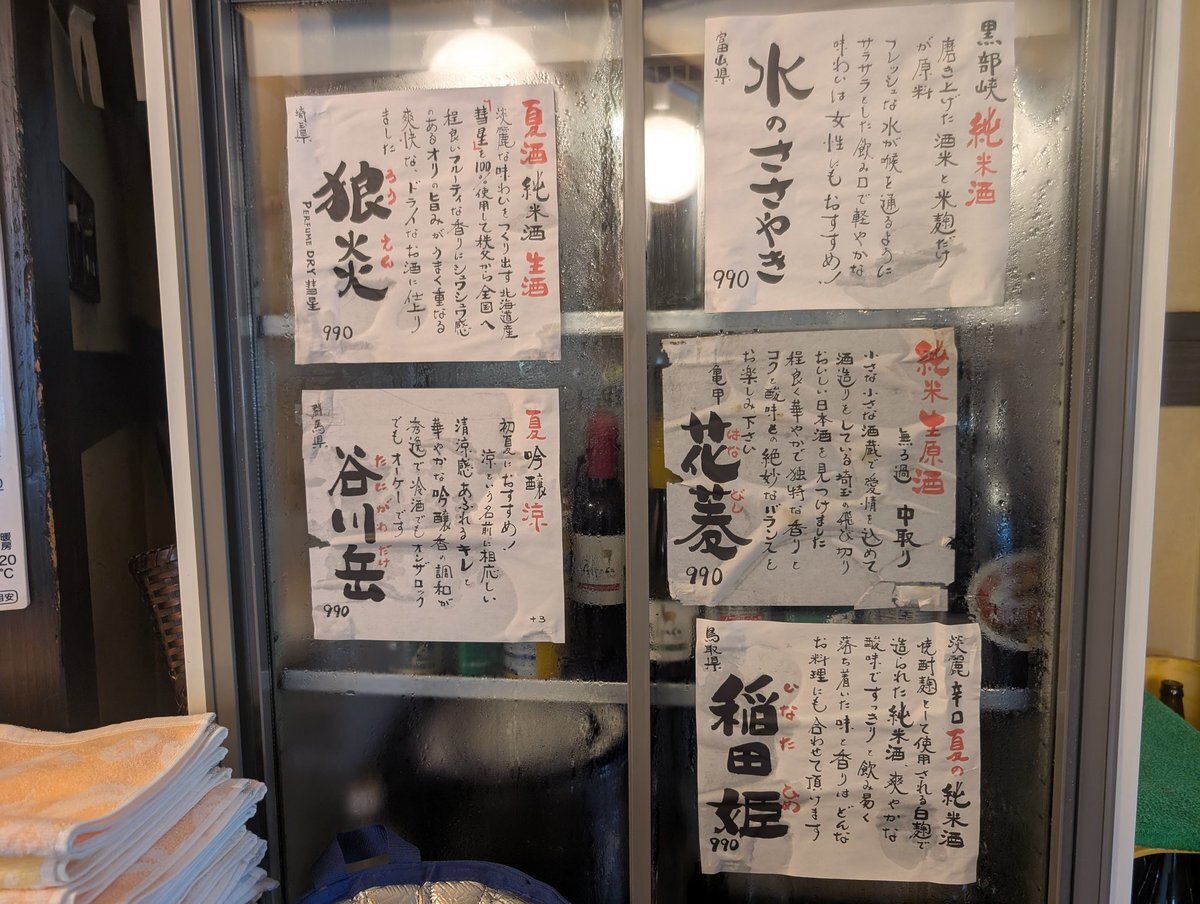 黒部峡 純米酒
磨き上げた酒米と米麹だけ
が原料
フレッシュな水が喉を通るように
サラサラとした飲み口で軽やかな
味わいは女性にもおすすめ!
水のささやき
富山県
990
夏酒 純米酒 生酒
淡麗な味わいをつくり出す北海道産
「彗星」を100%使用して秩父から全国へ
程良いフルーティな香りにシュワシュワ感
のあるオリの旨みがうまく重なる
爽快な、ドライなお酒に仕上り
ました
ろう えん
狼炎
PERFUME DRY 彗星
埼玉県
990
純米 生原酒
無ろ過 中取り
小さな小さな酒蔵で愛情を込めて
酒造りをしている埼玉の飛び切り
おいしい日本酒を見つけました
程良く華やかで独特な香りと
コクと酸味との絶妙なバランスを
お楽しみ下さい
亀甲
はな びし
花菱
990
夏 吟醸 涼
初夏におすすめ!
涼という名前に相応しい
清涼感あふれるキレと
華やかな吟醸香の調和が
秀逸で冷酒でもオンザロック
でもオーケーです
たに がわ だけ
谷川岳
群馬県
990
+3
淡麗辛口 夏の純米酒
焼酎麹として使用される白麹で
造られた純米酒、爽やかな
酸味ですっきりと飲み易く
落ち着いた味と香りはどんな
お料理にも合わせて頂けます
いなた ひめ
稲田姫
鳥取県
990
暖房
20
℃
目安